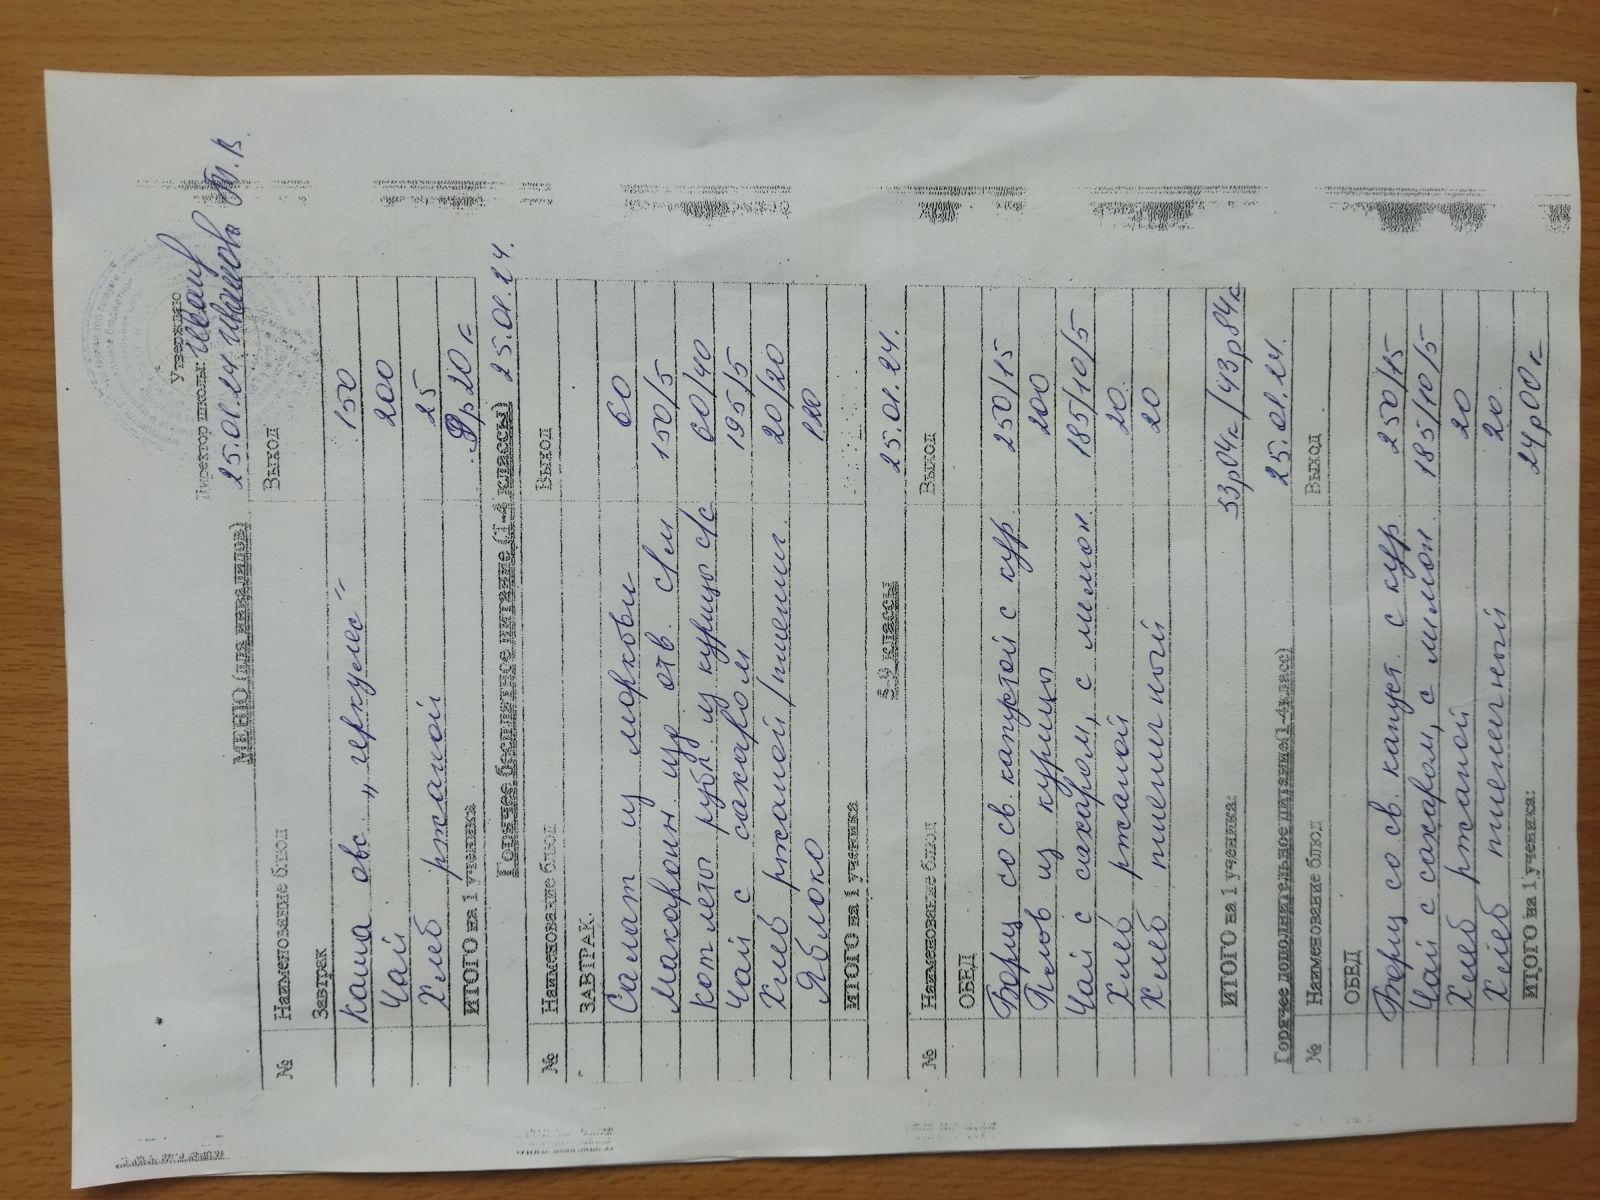 Утверждаю
Директор школы:
25.01.24
МЕНЮ (для инвалидов)
№ Наименование блюд Выход
Завтрак
Каша овс. „геркулес“ 150
Чай 200
Хлеб ржаной 25
ИТОГО на 1 ученика р 20 к
Горячее бесплатное питание (1-4 классы) 25.01.24.
№ Наименование блюд Выход
ЗАВТРАК.
Салат из моркови 60
Макарон. изд. отв. с/м 150/5
Котлета рубл. из курицы с/с 60/40
Чай с сахаром 195/5
Хлеб ржаной/пшенич. 20/20
Яблоко 120
ИТОГО на 1 ученика
5-9 классы 25.01.24.
№ Наименование блюд Выход
ОБЕД
Борщ со св. капустой с кур. 250/15
Плов из курицы 200
Чай с сахаром, с лимон. 185/10/5
Хлеб ржаной 20
Хлеб пшеничный 20
ИТОГО на 1 ученика: 53р04к/43р84к
25.01.24
Горячее дополнительное питание(1-4класс)
№ Наименование блюд Выход
ОБЕД
Борщ со св. капуст. с кур. 250/15
Чай с сахаром, с лимон 185/10/5
Хлеб ржаной 20
Хлеб пшеничный 20
ИТОГО на 1 ученика: 24р00к